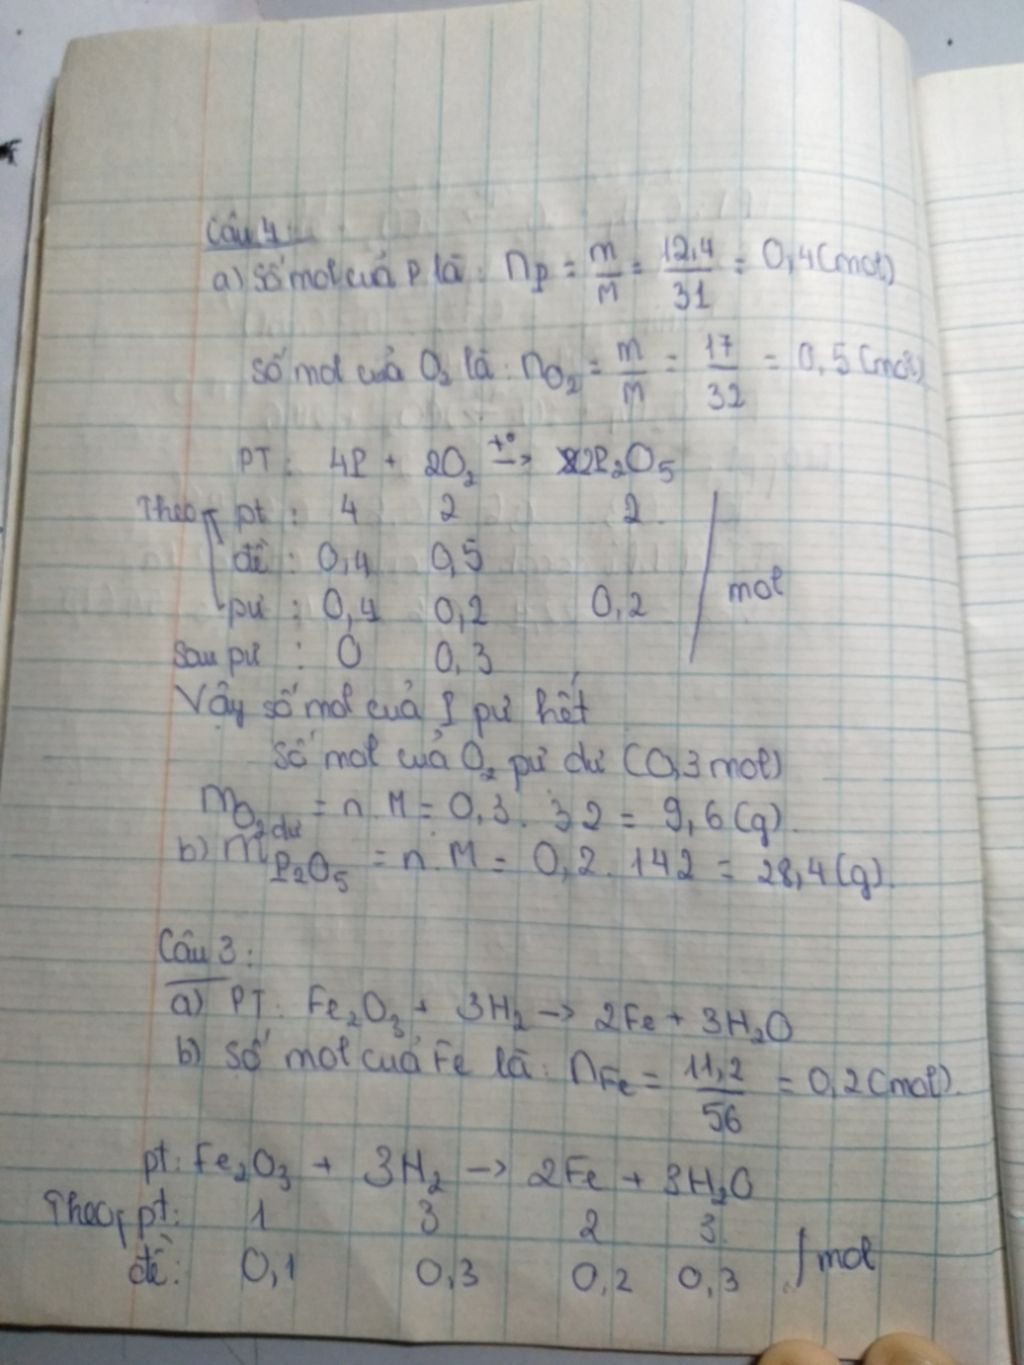 Câu 4:
a) Số mol của P là: nP = m/M = 12,4/31 = 0,4 (mol)
Số mol của O2 là: nO2 = m/M = 17/32 = 0,5 (mol)
PT: 4P + 2O2 t°→ 2P2O5
Theo pt: 4 2 2
đề: 0,4 0,5
pư: 0,4 0,2 0,2 mol
Sau pư: 0 0,3
Vậy số mol của P pư hết
số mol của O2 pư dư (0,3 mol)
mO2 dư = n.M = 0,3.32 = 9,6 (g).
b) mP2O5 = n.M = 0,2.142 = 28,4 (g).
Câu 3:
a) PT: Fe2O3 + 3H2 → 2Fe + 3H2O
b) Số mol của Fe là: nFe = 11,2/56 = 0,2 (mol).
pt: Fe2O3 + 3H2 → 2Fe + 3H2O
Theo pt: 1 3 2 3
đề: 0,1 0,3 0,2 0,3 mol